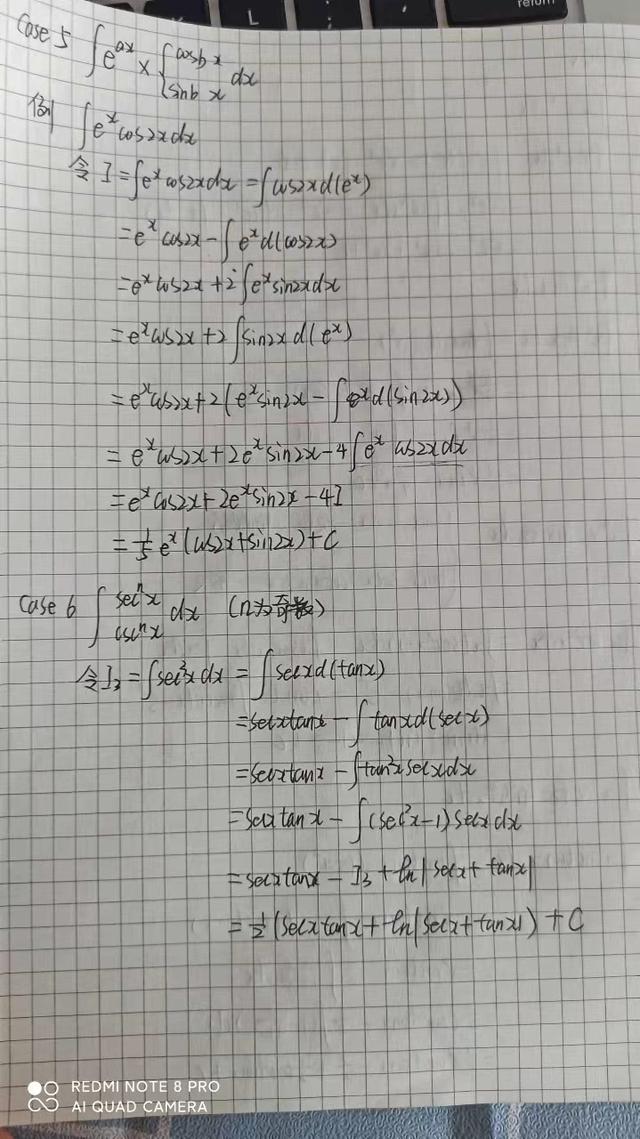 L
return
Case 5 ∫e^{ax} × {cosbx sinbx dx
例 ∫e^x cos2xdx
令I=∫e^x cos2xdx=∫cos2xd(e^x)
=e^x cos2x-∫e^x d(cos2x)
=e^x cos2x+2∫e^x sin2xdx
=e^x cos2x+2∫sin2xd(e^x)
=e^x cos2x+2(e^x sin2x-∫e^x d(sin2x))
=e^x cos2x+2e^x sin2x-4∫e^x cos2xdx
=e^x cos2x+2e^x sin2x-4I
=1/5 e^x(cos2x+sin2x)+C
Case 6 ∫ sec^n x csc^n x dx (n为奇数)
令I₃=∫sec³xdx=∫secxd(tanx)
=secxtanx-∫tanxd(secx)
=secxtanx-∫tan²xsecxdx
=secxtanx-∫(sec²x-1)secxdx
=secxtanx-I₃+ln|secx+tanx|
=1/2(secxtanx+ln|secx+tanx|)+C
REDMI NOTE 8 PRO
AI QUAD CAMERA